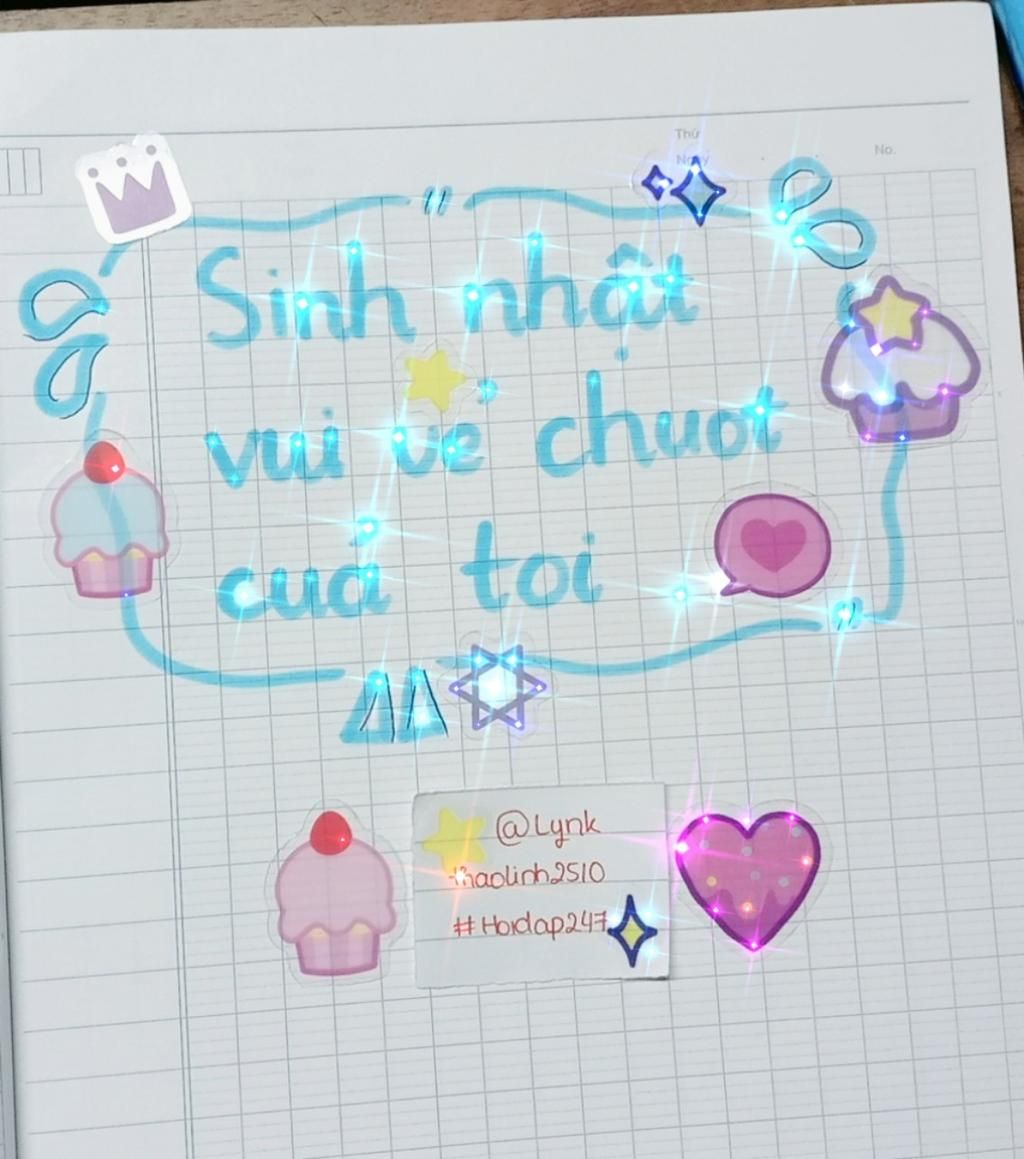 Thứ
Ngày
No.
Sinh nhật
vui vẻ chuot
củả toi
@Lynk
thaolinh2510
#Hoidap247